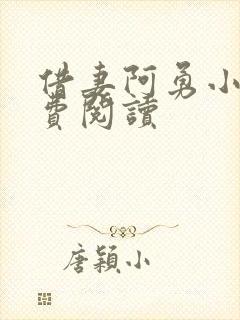 借妻阿勇小
費閱讀
唐穎小